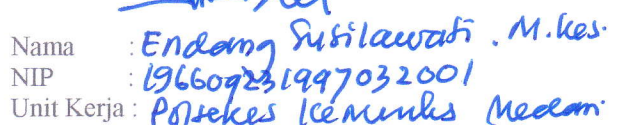 Nama : Endang Susilawati . M.kes.
NIP : 196609231997032001
Unit Kerja : Poltekes Kemenkes Medan